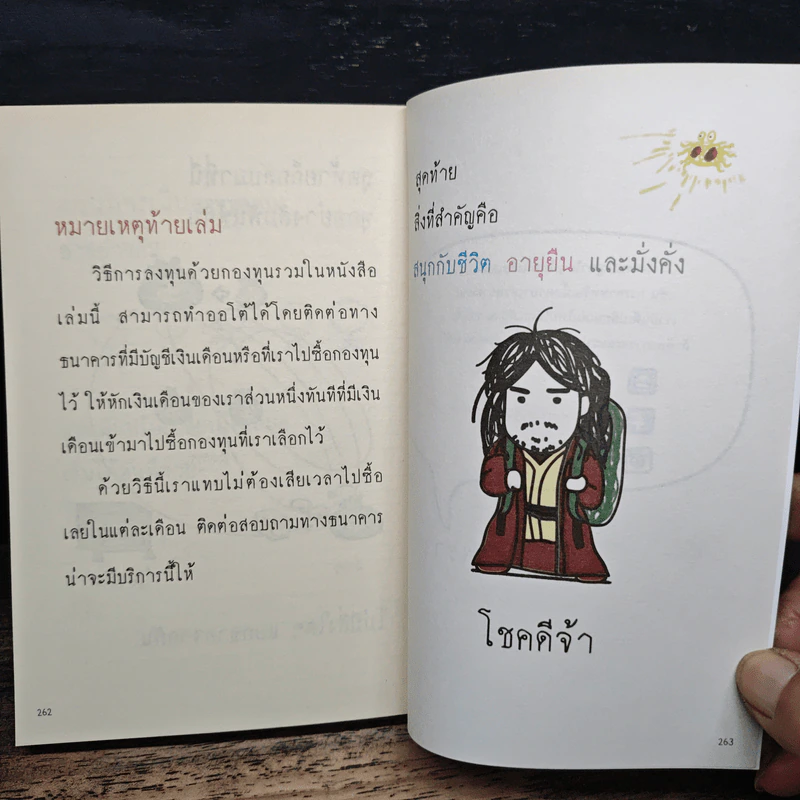 หมายเหตุท้ายเล่ม
วิธีการลงทุนด้วยกองทุนรวมในหนังสือ
เล่มนี้ สามารถทำออโต้ได้โดยติดต่อทาง
ธนาคารที่มีบัญชีเงินเดือนหรือที่เราไปซื้อกองทุน
ไว้ ให้หักเงินเดือนของเราส่วนหนึ่งทันทีที่มีเงิน
เดือนเข้ามาไปซื้อกองทุนที่เราเลือกไว้
ด้วยวิธีนี้เราแทบไม่ต้องเสียเวลาไปซื้อ
เลยในแต่ละเดือน ติดต่อสอบถามทางธนาคาร
น่าจะมีบริการนี้ให้
262
สุดท้าย
สิ่งที่สำคัญคือ
สนุกกับชีวิต อายุยืน และมั่งคั่ง
โชคดีจ้า
263